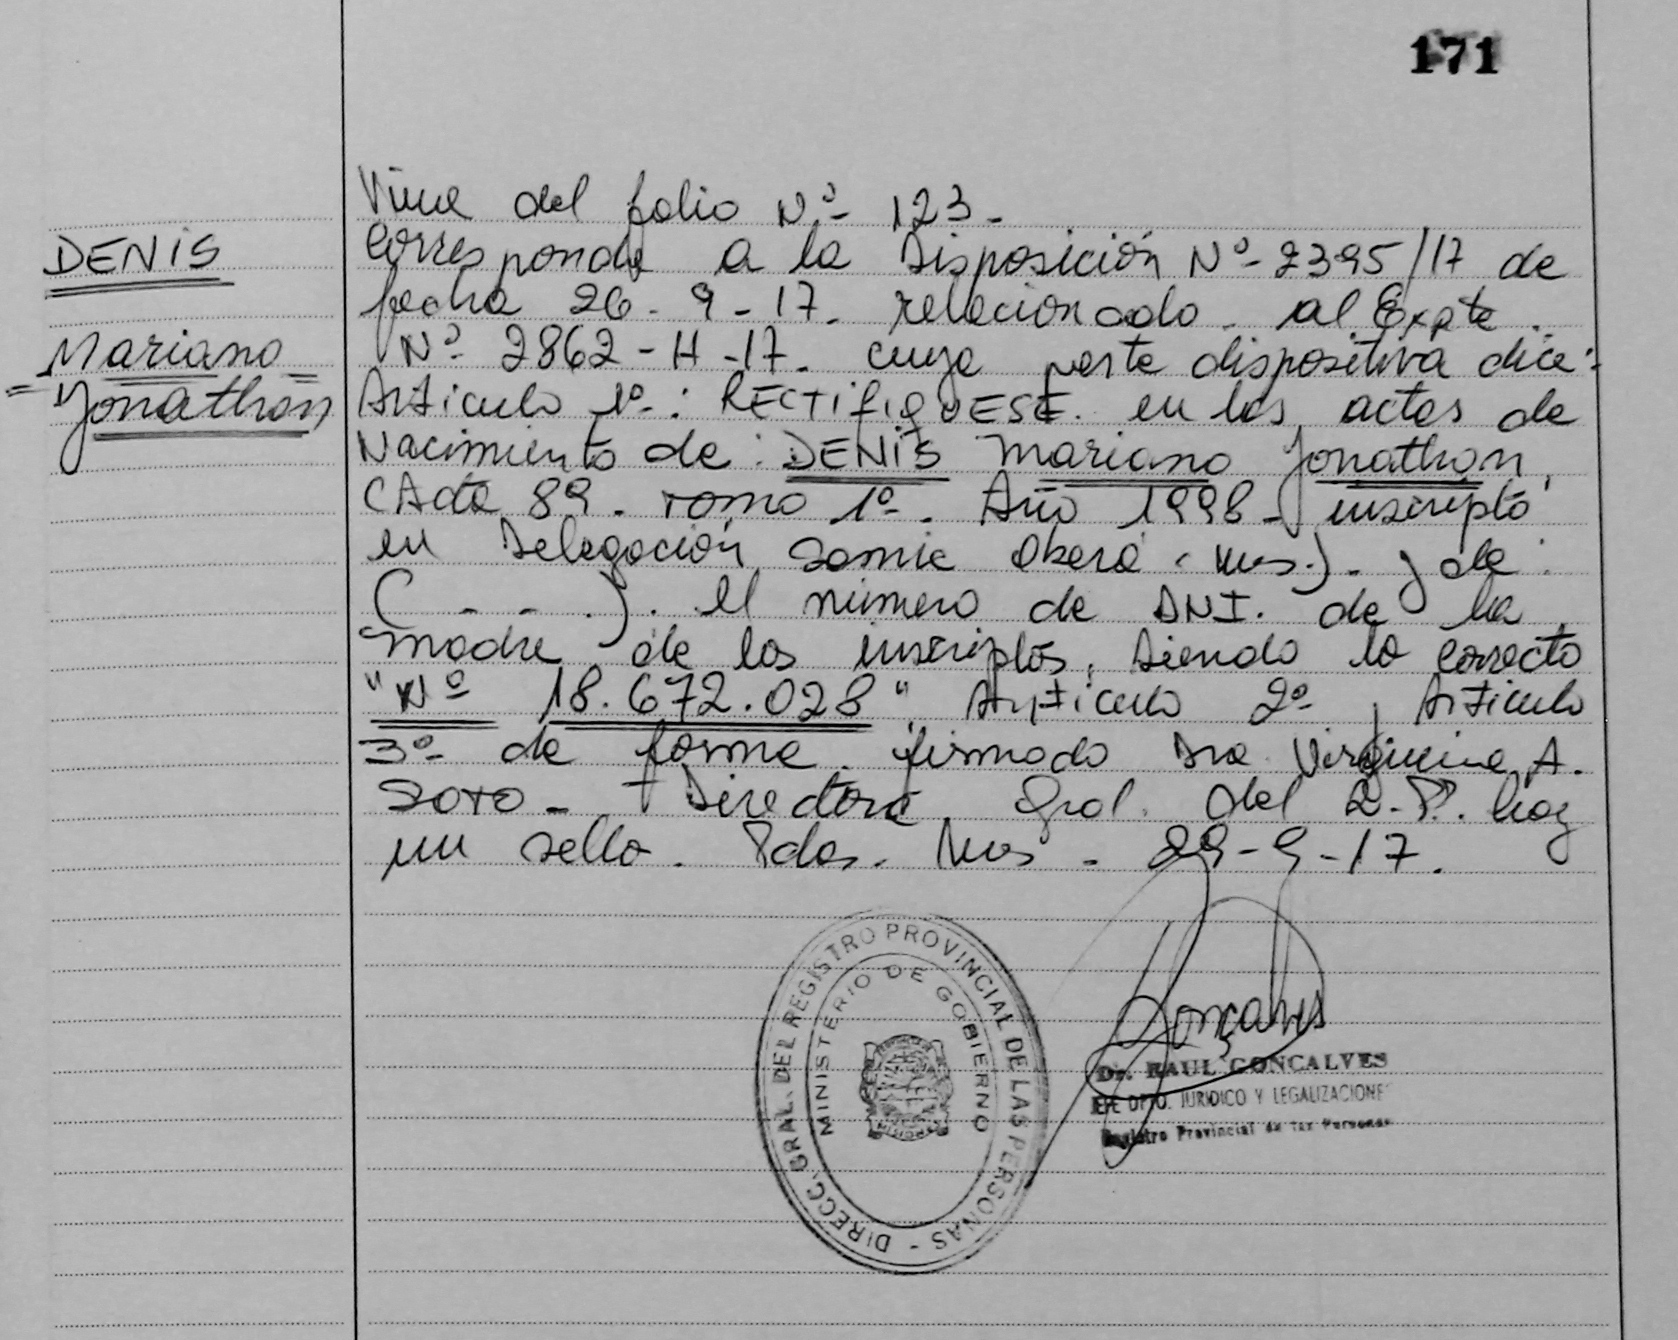 171
DENIS
Mariano
= Jonathon
Viene del folio Nº- 123-
Corresponde a la Disposición Nº- 2395/17 de
fecha 26-9-17. relacionado al Expte.
Nº- 2862-H-17. cuya parte dispositiva dice:
Articulo 1º-: RECTIFIQUESE. en las actas de
Nacimiento de: DENIS Mariano Jonathon,
(Acta 89. Tomo 1º-. Año 1998- inscripto
en Delegación Samic Oberá (Mns.)- y de:
(- - -). el número de DNI. de la
madre de los inscriptos, siendo lo correcto
"Nº 18.672.028" Articulo 2º y Articulo
3º- de forma. firmado Dra. Virginia A.
SOTO- Directora Gral. del R.P. hay
un sello. Pdas. Mns- 29-9-17.
DIRECC. GRAL. DEL REGISTRO PROVINCIAL DE LAS PERSONAS -
MINISTERIO DE GOBIERNO
Gonçalves
Dr. RAUL GONCALVES
JEFE DPTO. JURIDICO Y LEGALIZACIONES
Registro Provincial de las Personas